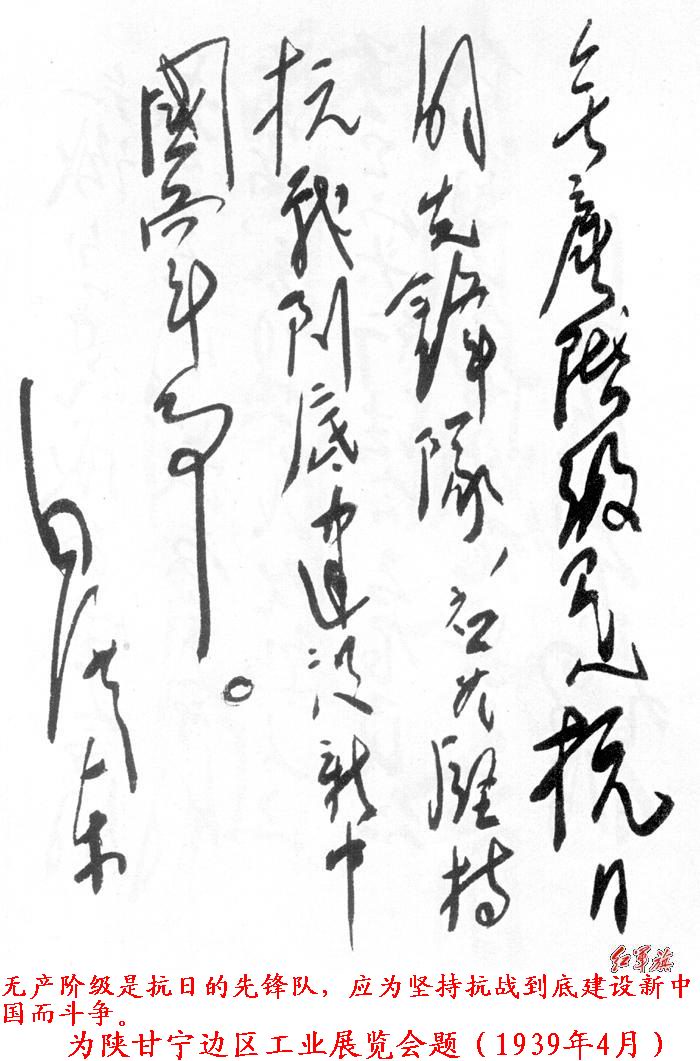 无产阶级是抗日
的先锋队，应为坚持
抗战到底建设新中
國而斗争。
毛泽东
红军旗
无产阶级是抗日的先锋队，应为坚持抗战到底建设新中
国而斗争。
为陕甘宁边区工业展览会题（1939年4月）